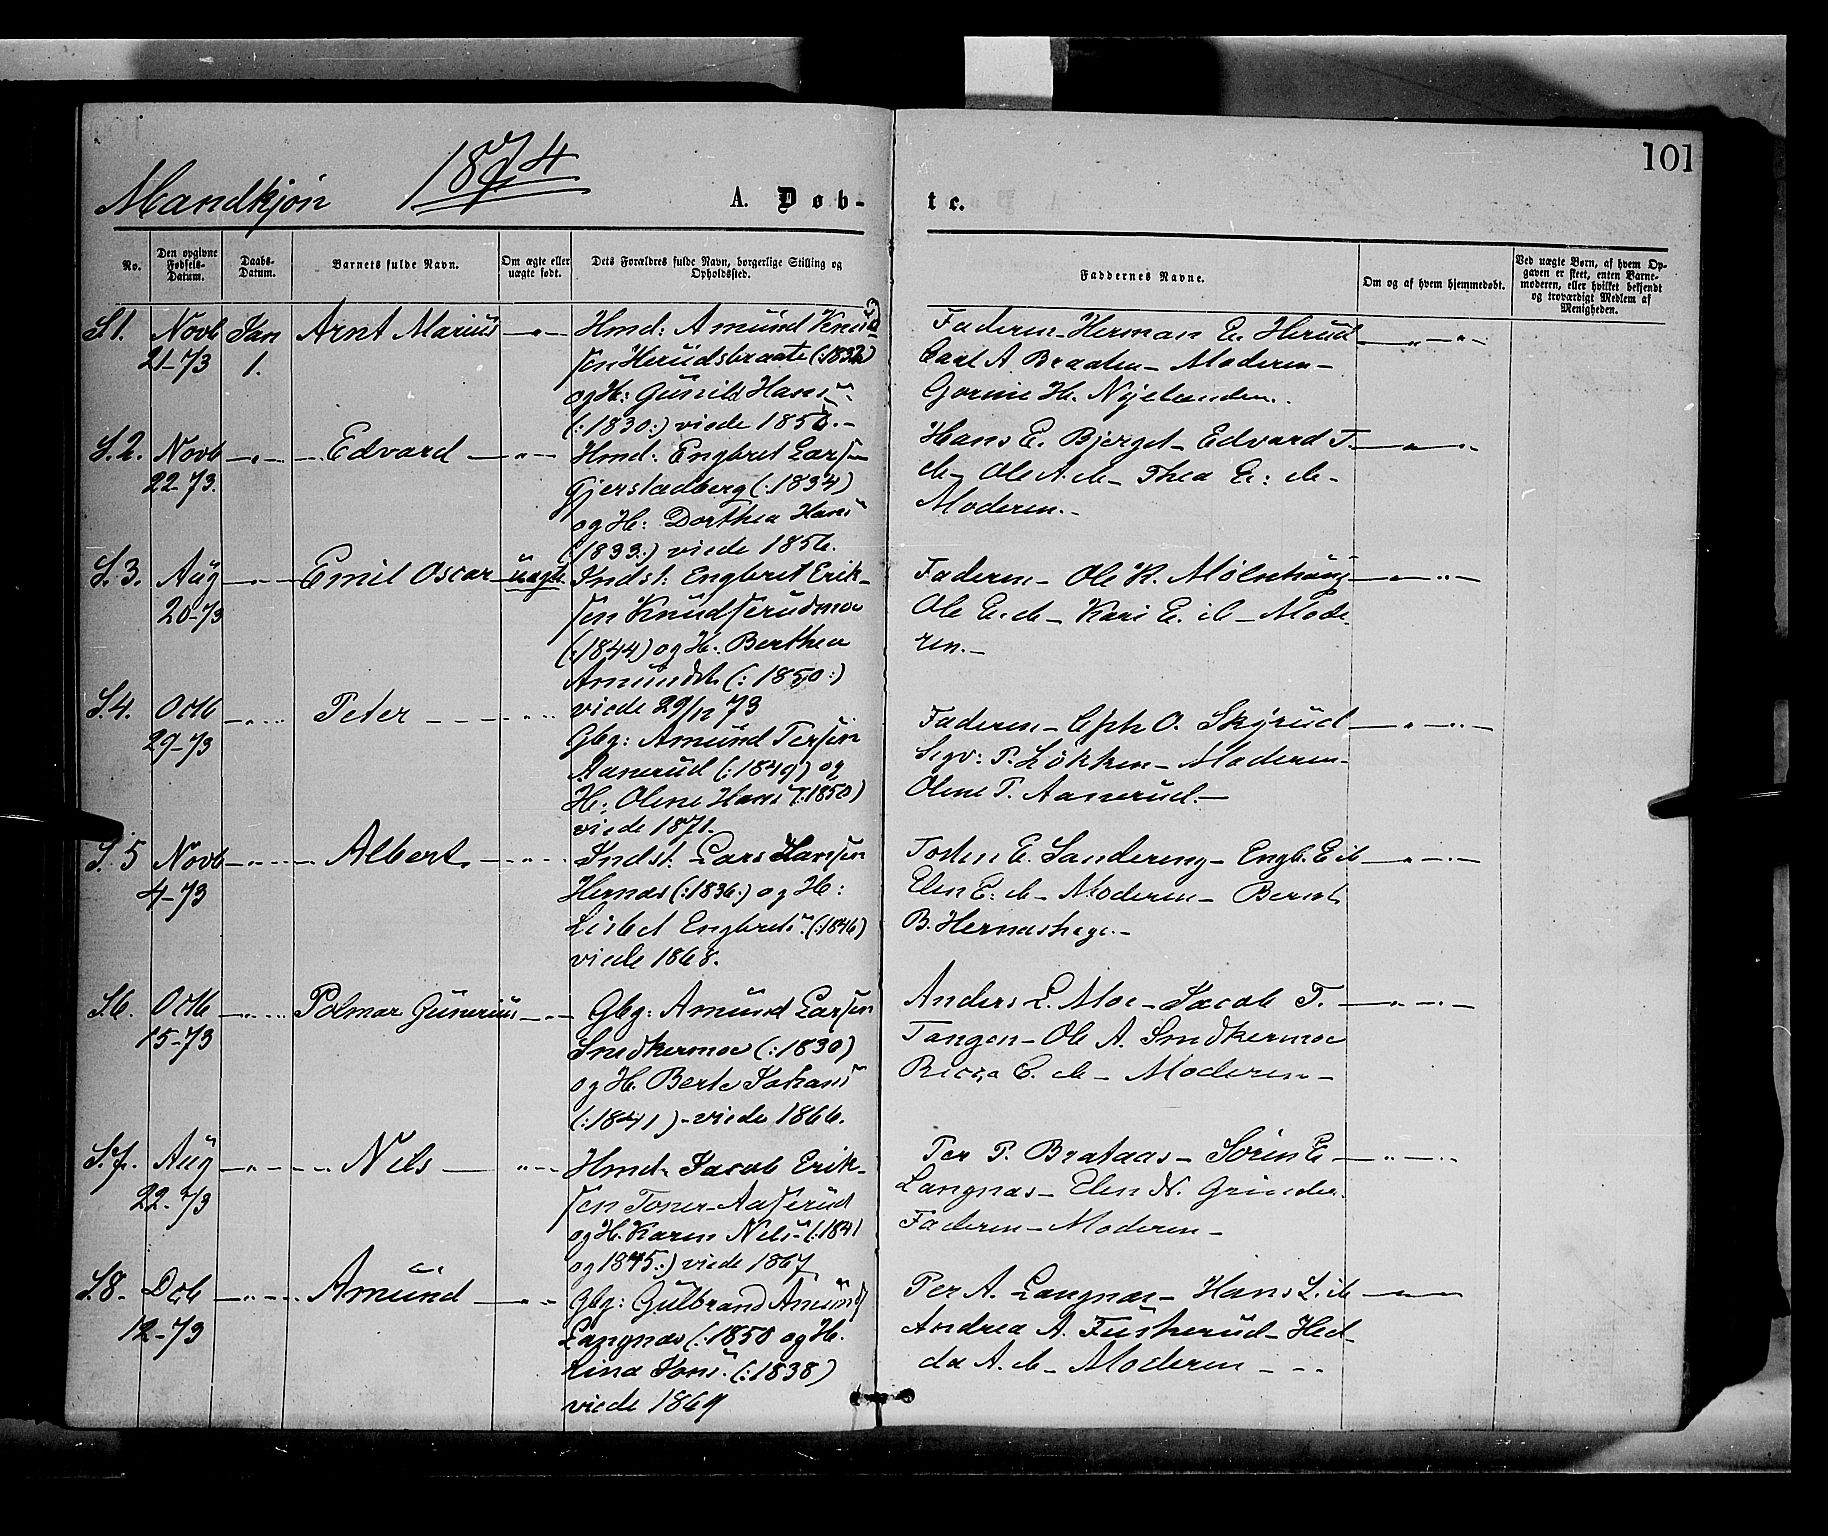 101
Mandkjøn 1874 A. Døb- te.
No.
Den opgivne Fødsels-Datum.
Daabs-Datum.
Barnets fulde Navn.
Om ægte eller uægte født.
Dets Forældres fulde Navn, borgerlige Stilling og Opholdssted.
Faddernes Navne.
Om og af hvem hjemmedøbt.
Ved uægte Børn, af hvem Op-
gaven er skeet, enten Barne-
moderen, eller hvilket bekjendt
og troværdigt Medlem af
Menigheden.
S1. Novb Jan Arnt Marius — " — Hmd: Amund Knud
21-73 1. sen Herudsbraate (:1832)
og H: Gunild Hans
(:1830:) viede 185
Faderen - Herman E. Herud — " — " -
Carl A. Braaten - Moderen -
Gorine H. Nylenden.
S.2. Novb — " — Edvard — " — Hmd: Engbret Larsen
22-73. Gjerstadberg (:1834)
og H: Dorthea Hans
(:1833:) viede 1856.
Hans E. Bjerget - Edvard T. — " —
do - Ole A. do - Thea E: do -
Moderen. -
S.3. Aug — " — Emil Oscar - uægte. Indst: Engbret Erik-
20-73 sen Knudserudmoe
(:1844) og H: Berthea
Amundsd. (:1850:)
viede 29/12 73
Faderen - Ole K. Mølnhaug — " —
Ole E. do - Kari E. do - Mode-
ren. -
S.4. Octb — " — Peter — " — Gbg: Amund Persen
29-73 Aanerud (:1849) og
H: Olene Hans (:1850)
viede 1871.
Faderen - Cph O. Skyrud — " —
Segv: P. Løkken - Moderen -
Olene P. Aanerud. -
S.5 Novb — " — Albert. — " — Indst. Lars Hansen
4-73 Hernæs (:1836:) og H:
Lisbet Engbrets. (:1846)
viede 1868.
Tosten E. Sandereng - Engb. E do — " —
Elen E. do - Moderen - Bernt
B. Hernæshage. -
S.6. Octb — " — Polmar Gunerius — " — Gbg: Amund Larsen
15-73 Snedkermoe (:1830)
og H. Berte Johans
(:1841) - viede 1866.
Anders L. Moe - Jacob T. — " —
Tangen - Ole A. Snedkermoe
E. do - Moderen -
S.7. Aug — " — Nils — " — Hmd. Jacob Erik-
22-73 sen Toner-Aaserud
og H. Karen Nils - (:1841
og 1845:) viede 1867
Per P. Brataas - Søren E — " —
Langnæs - Elen N. Grinder.
Faderen - Moderen -
S.8. Dcb — " — Amund — " — Gbg: Gulbrand Amunds
12-73 Langnæs (:1850 og H.
Lina Jons. (:1838)
viede 1869
Per A. Langnæs - Hans L. do — " —
Andrea A. Fuskerud - Hed-
da A. do - Moderen - - -